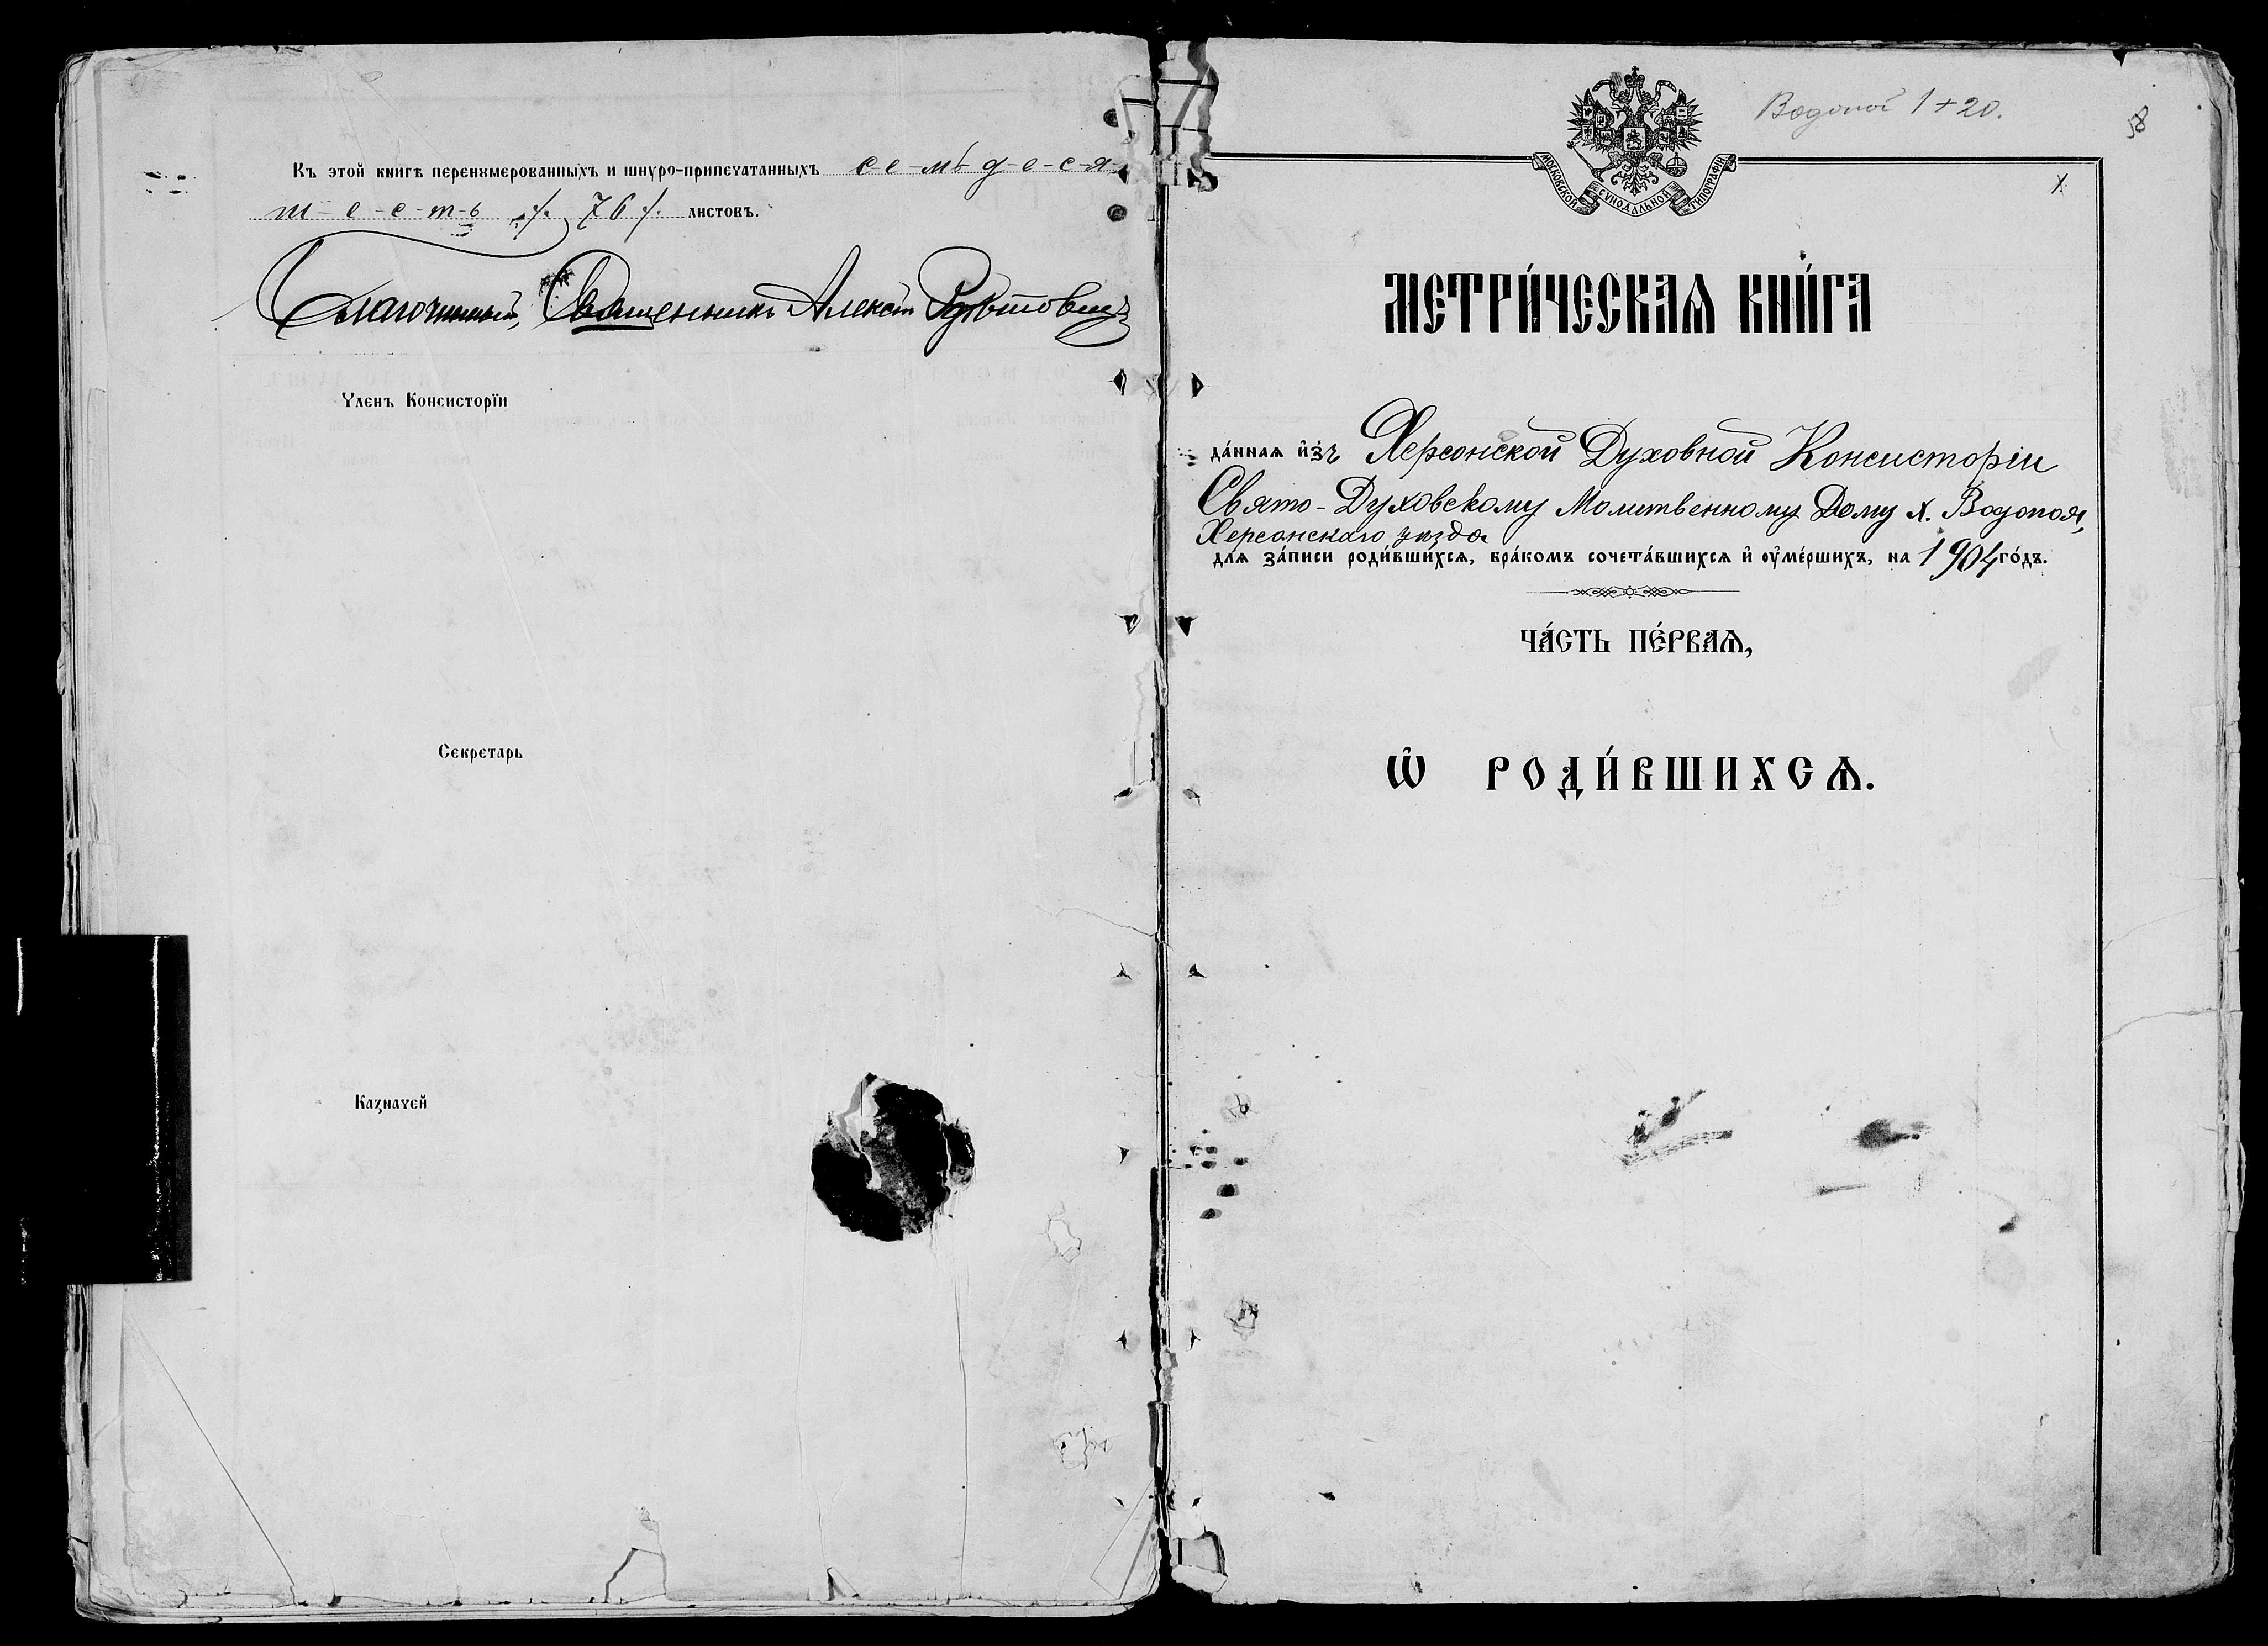 Къ этой книгѣ перенꙋмерованныхъ и шнꙋро-припечатанныхъ се-мь-д-е-с-я-
ш-е-с-т-ь ./. 76 /. листовъ.
Благочинный, Священникъ Алексѣй
Членъ Консисторїи
Секретарь
Казначей
Водопой 1+20.
58
х
МОСКОВСКОЙ СѴНОДАЛЬНОЙ ТИПОГРАФІИ
МЕТРИ́ЧЕСКАѦ КНИ́ГА
да́ннаѧ и҆зъ Херсонской Духовной Консисторіи
Свято-Духовскому Молитвенному Дому х. Водопоя,
Херсонскаго уѣзда
для за́писи роди́вшихсѧ, бра́комъ сочета́вшихсѧ и҆ ᲂу҆ме́ршихъ, на 1904 го́дъ.
ЧА́СТЬ ПЕ́РВАѦ,
Ѡ҆ РОДИ́ВШИХСѦ.